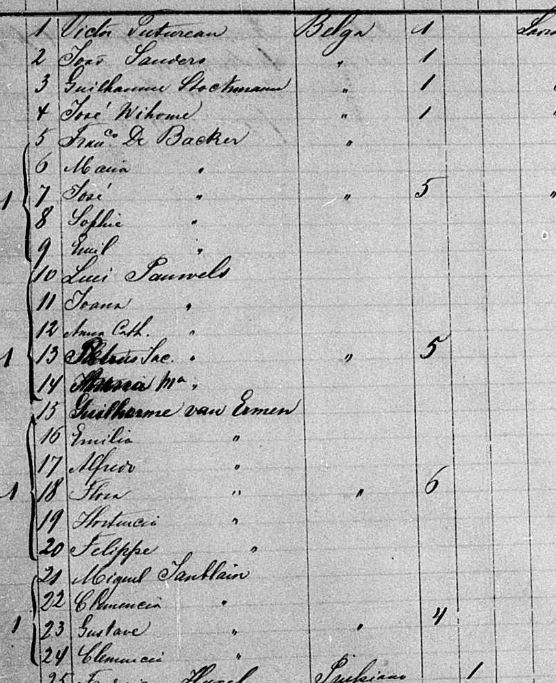 1 Victor Putureau Belga 1
2 João Sanders " 1
3 Guilhaume Stockmann " 1 "
4 José Wihome " 1
5 Franco De Backer "
6 Maria "
1 7 José " " 5 "
8 Sophie "
9 Emil "
10 Luci Pauwels
11 Joana "
12 Anna Cath. "
1 13 Petrus Jac. " " 5
14 Maria "
15 Guilherme van Ermen
16 Emilia "
17 Alfredo "
1 18 Flora " " 6
19 Hortencia "
20 Felippe "
21 Miguel
22 Clemencia "
1 23 Gustave " " 4
24 Clemencia "
25 Prussiano 1